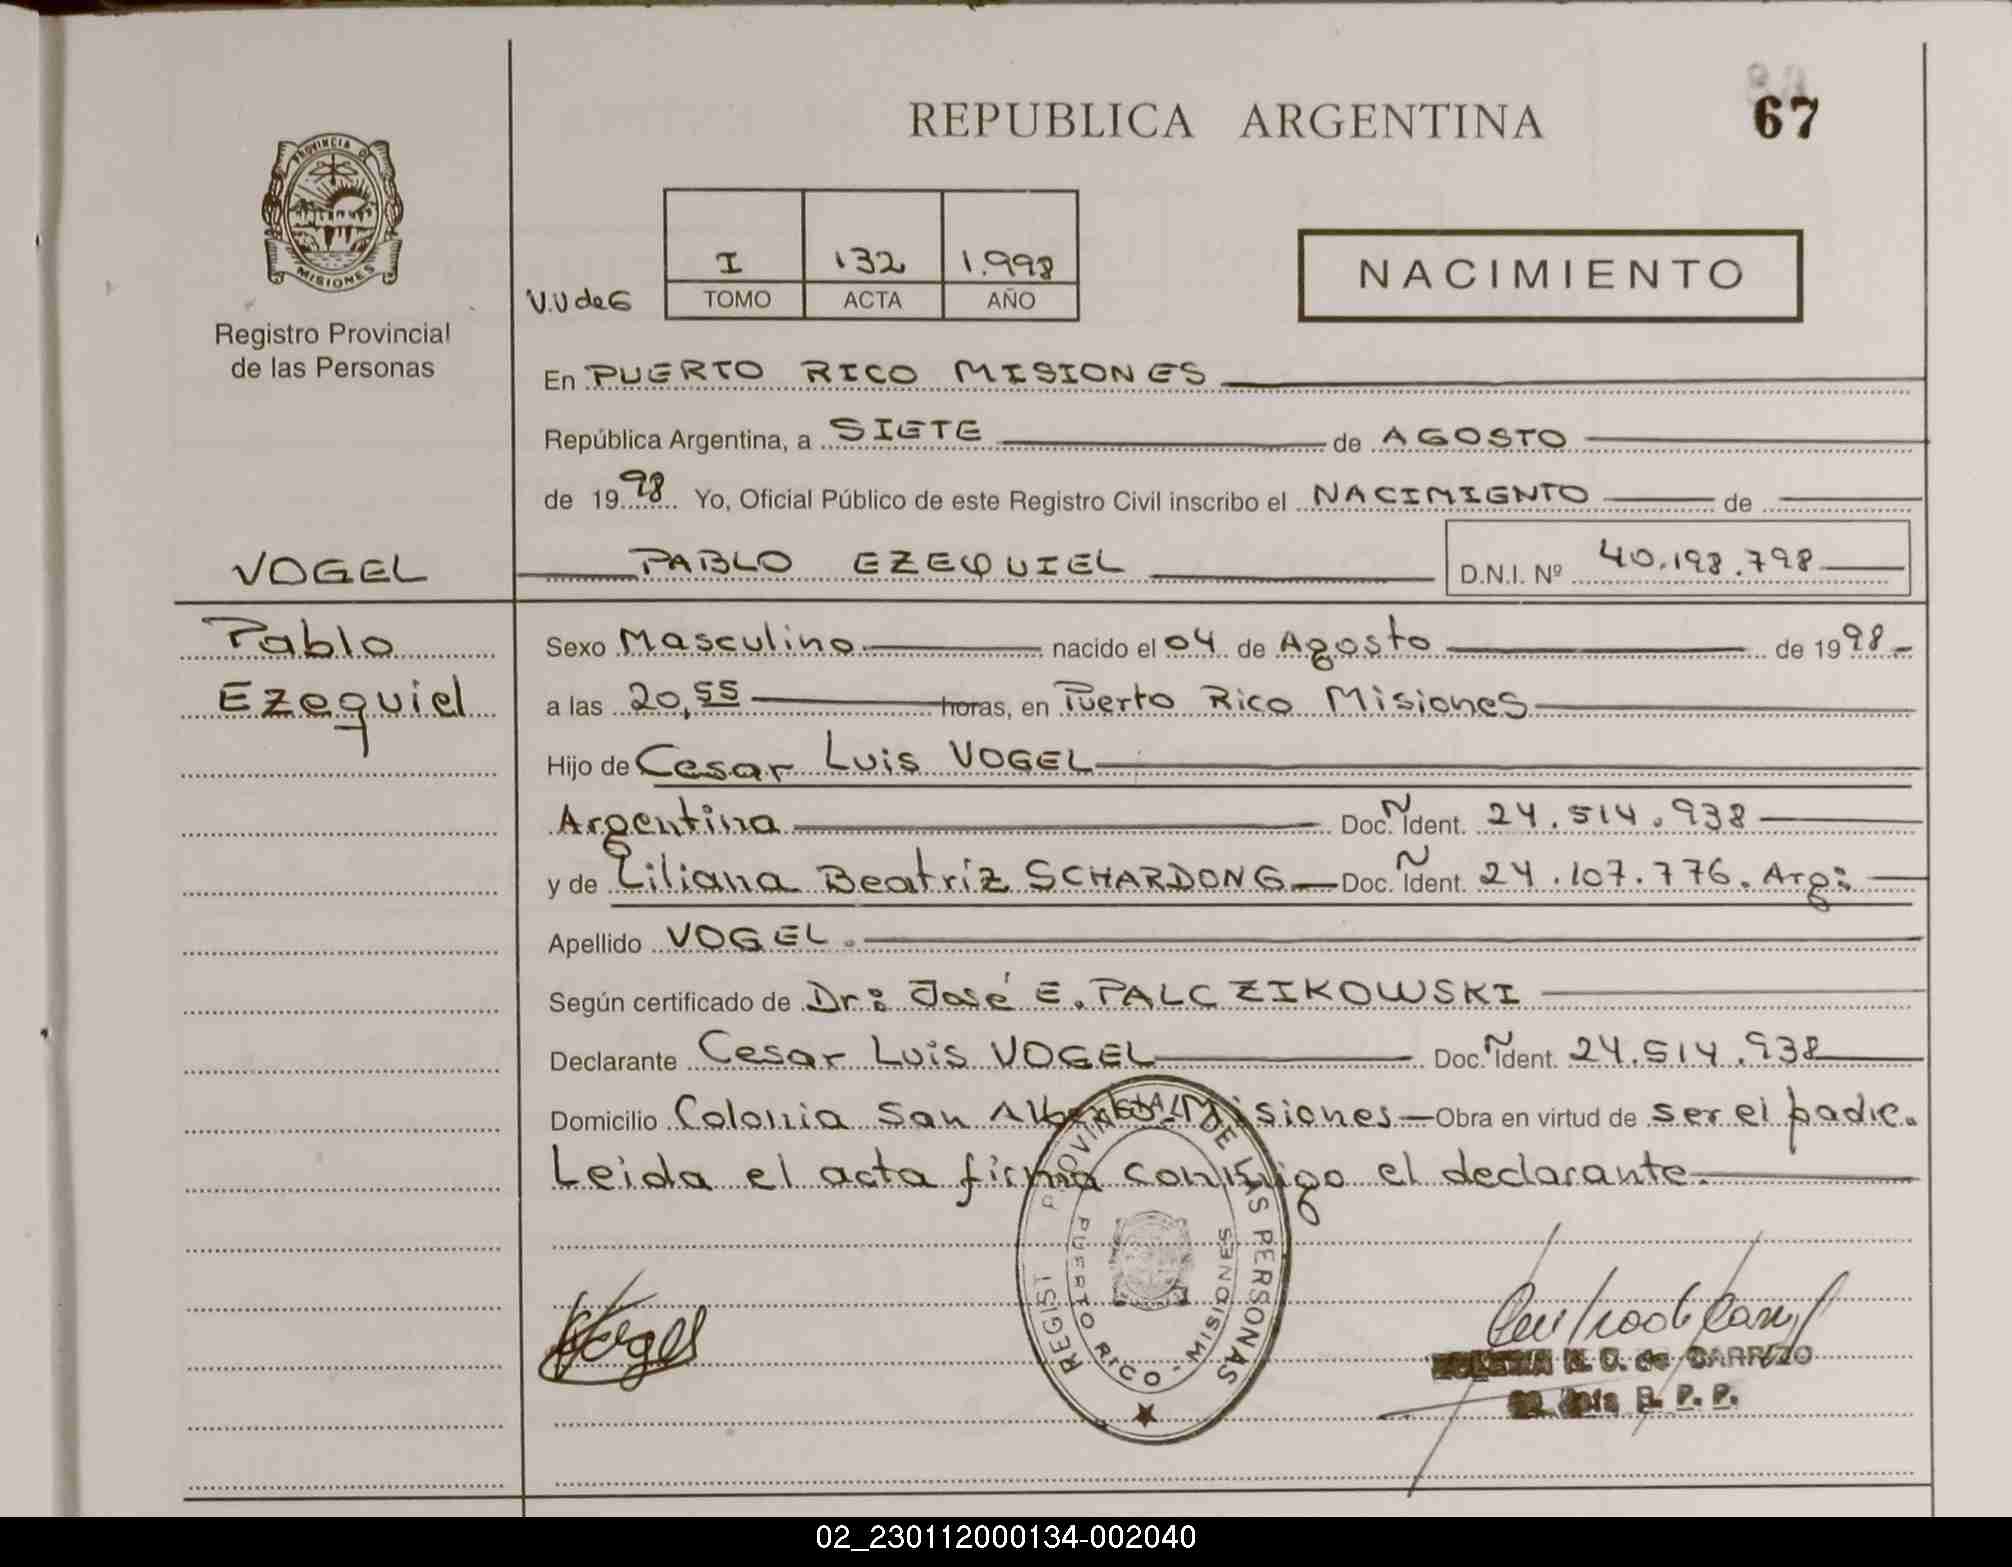 REPUBLICA ARGENTINA
67
PROVINCIA DE
MISIONES
Registro Provincial
de las Personas
V.V de G
I 132 1.998
TOMO ACTA AÑO
NACIMIENTO
En PUERTO RICO MISIONES
República Argentina, a SIETE de AGOSTO
de 1998 Yo, Oficial Público de este Registro Civil inscribo el NACIMIENTO de
VOGEL
PABLO EZEQUIEL D.N.I. Nº 40.198.798
Pablo
Ezequiel
Sexo Masculino nacido el 04 de Agosto de 1998
a las 20,55 horas, en Puerto Rico Misiones
Hijo de Cesar Luis VOGEL
Argentina Doc. Ident. 24.514.938
y de Liliana Beatriz SCHARDONG Doc. Ident. 24.107.776. Arg:
Apellido VOGEL.
Según certificado de Dr: José E. PALCZIKOWSKI
Declarante Cesar Luis VOGEL Doc. Ident. 24.514.938
Domicilio Colonia San Alberto Misiones Obra en virtud de ser el padre.
Leida el acta firma conmigo el declarante.
REGIST PROVINCIAL DE LAS PERSONAS
PUERTO RICO - MISIONES
Vogel
de CARRIZO
P. P.
02_230112000134-002040